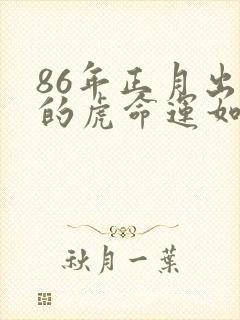 86年正月出
的虎命运如
秋月一葉